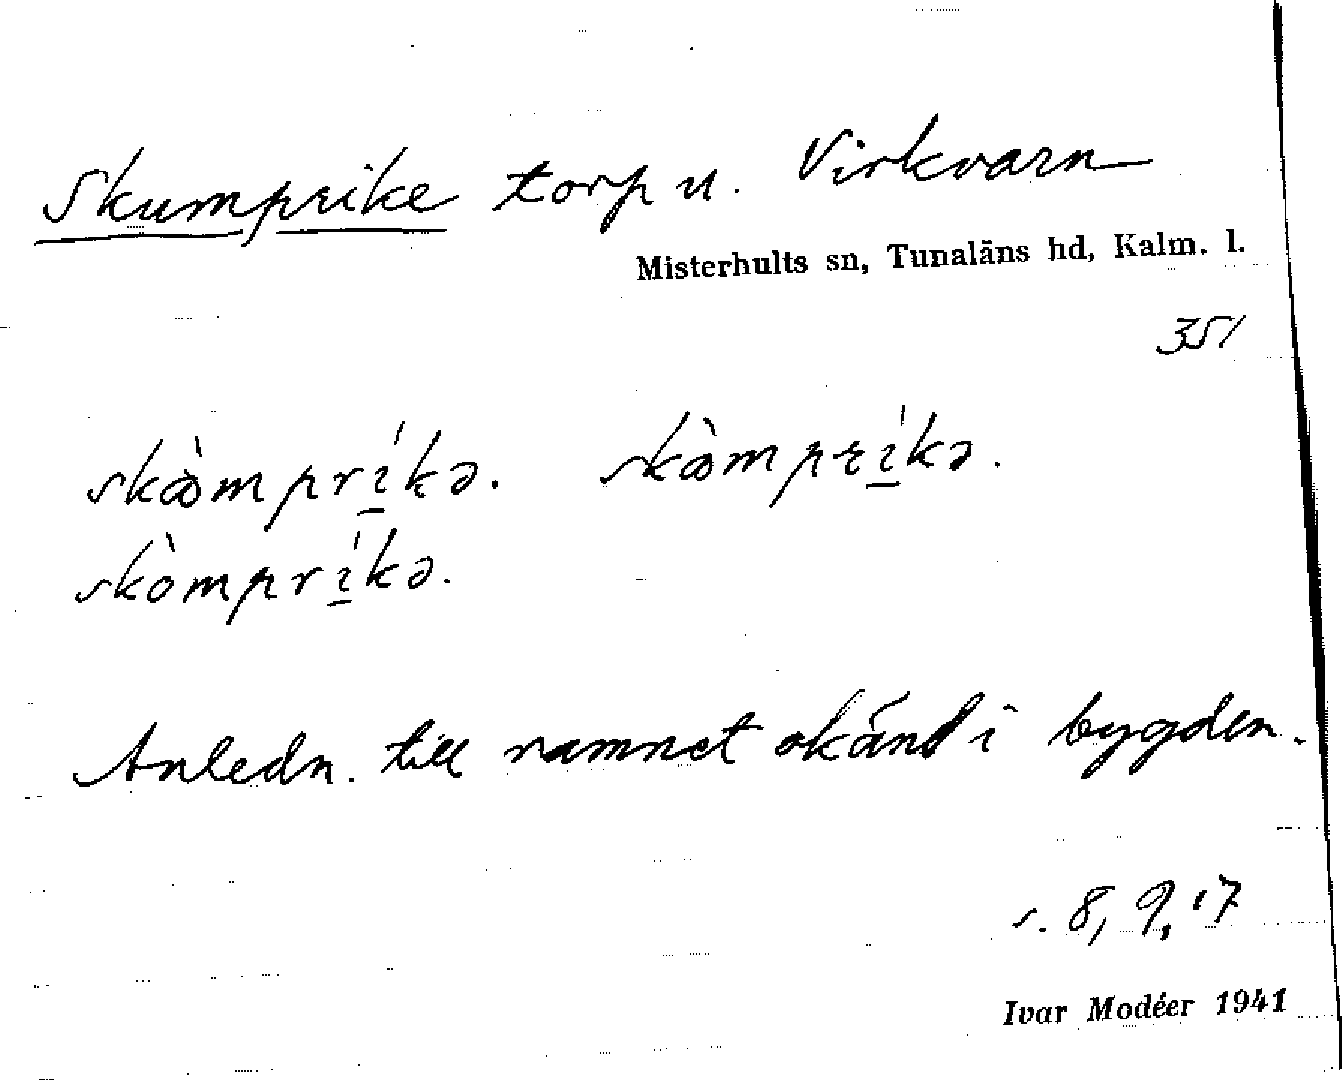 Skumprike torp u. Virkvarn
Misterhults sn, Tunaläns hd, Kalm. l.
351
skɷ̀mprí̱kə. skɷ̀mprí̱kə.
skòmprí̱kə.
Anledn. till namnet okänd i bygden.
s. 8, 9, 17
Ivar Modéer 1941